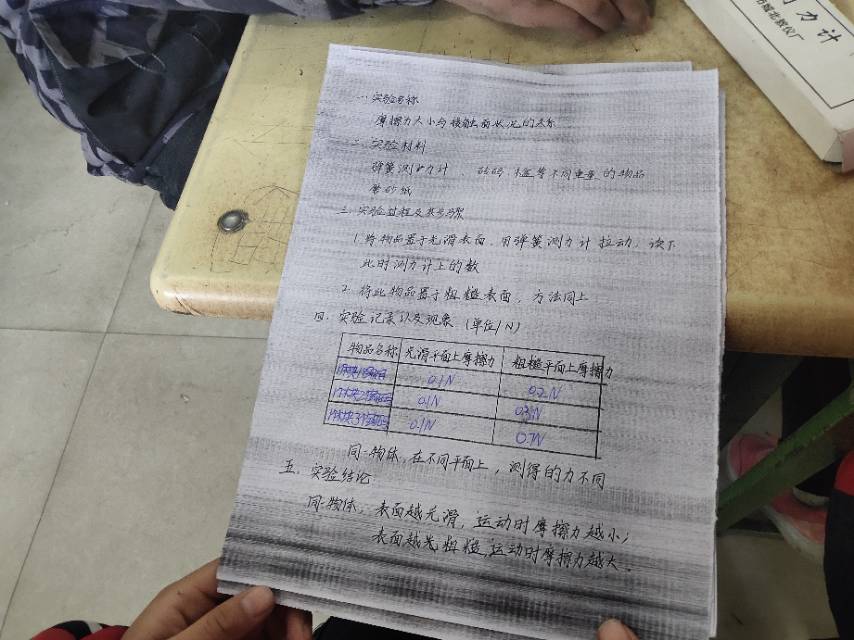 力计
市城北教仪厂
一、实验名称
摩擦力大小与接触面状况的关系
二、实验材料
弹簧测力计、砝码、木块等不同重量的物品
磨砂纸
三、实验过程及步骤
1. 将物品置于光滑表面,用弹簧测力计拉动,读下
此时测力计上的数
2. 将此物品置于粗糙表面,方法同上
四、实验记录以及现象(单位/N)
物品名称 光滑平面上摩擦力 粗糙平面上摩擦力
1木块1砝码 0.1N 0.2N
1木块2砝码 0.1N 0.3N
1木块3砝码 0.1N 0.7N
同一物体,在不同平面上,测得的力不同
五、实验结论
同一物体,表面越光滑,运动时摩擦力越小,
表面越光粗糙,运动时摩擦力越大.